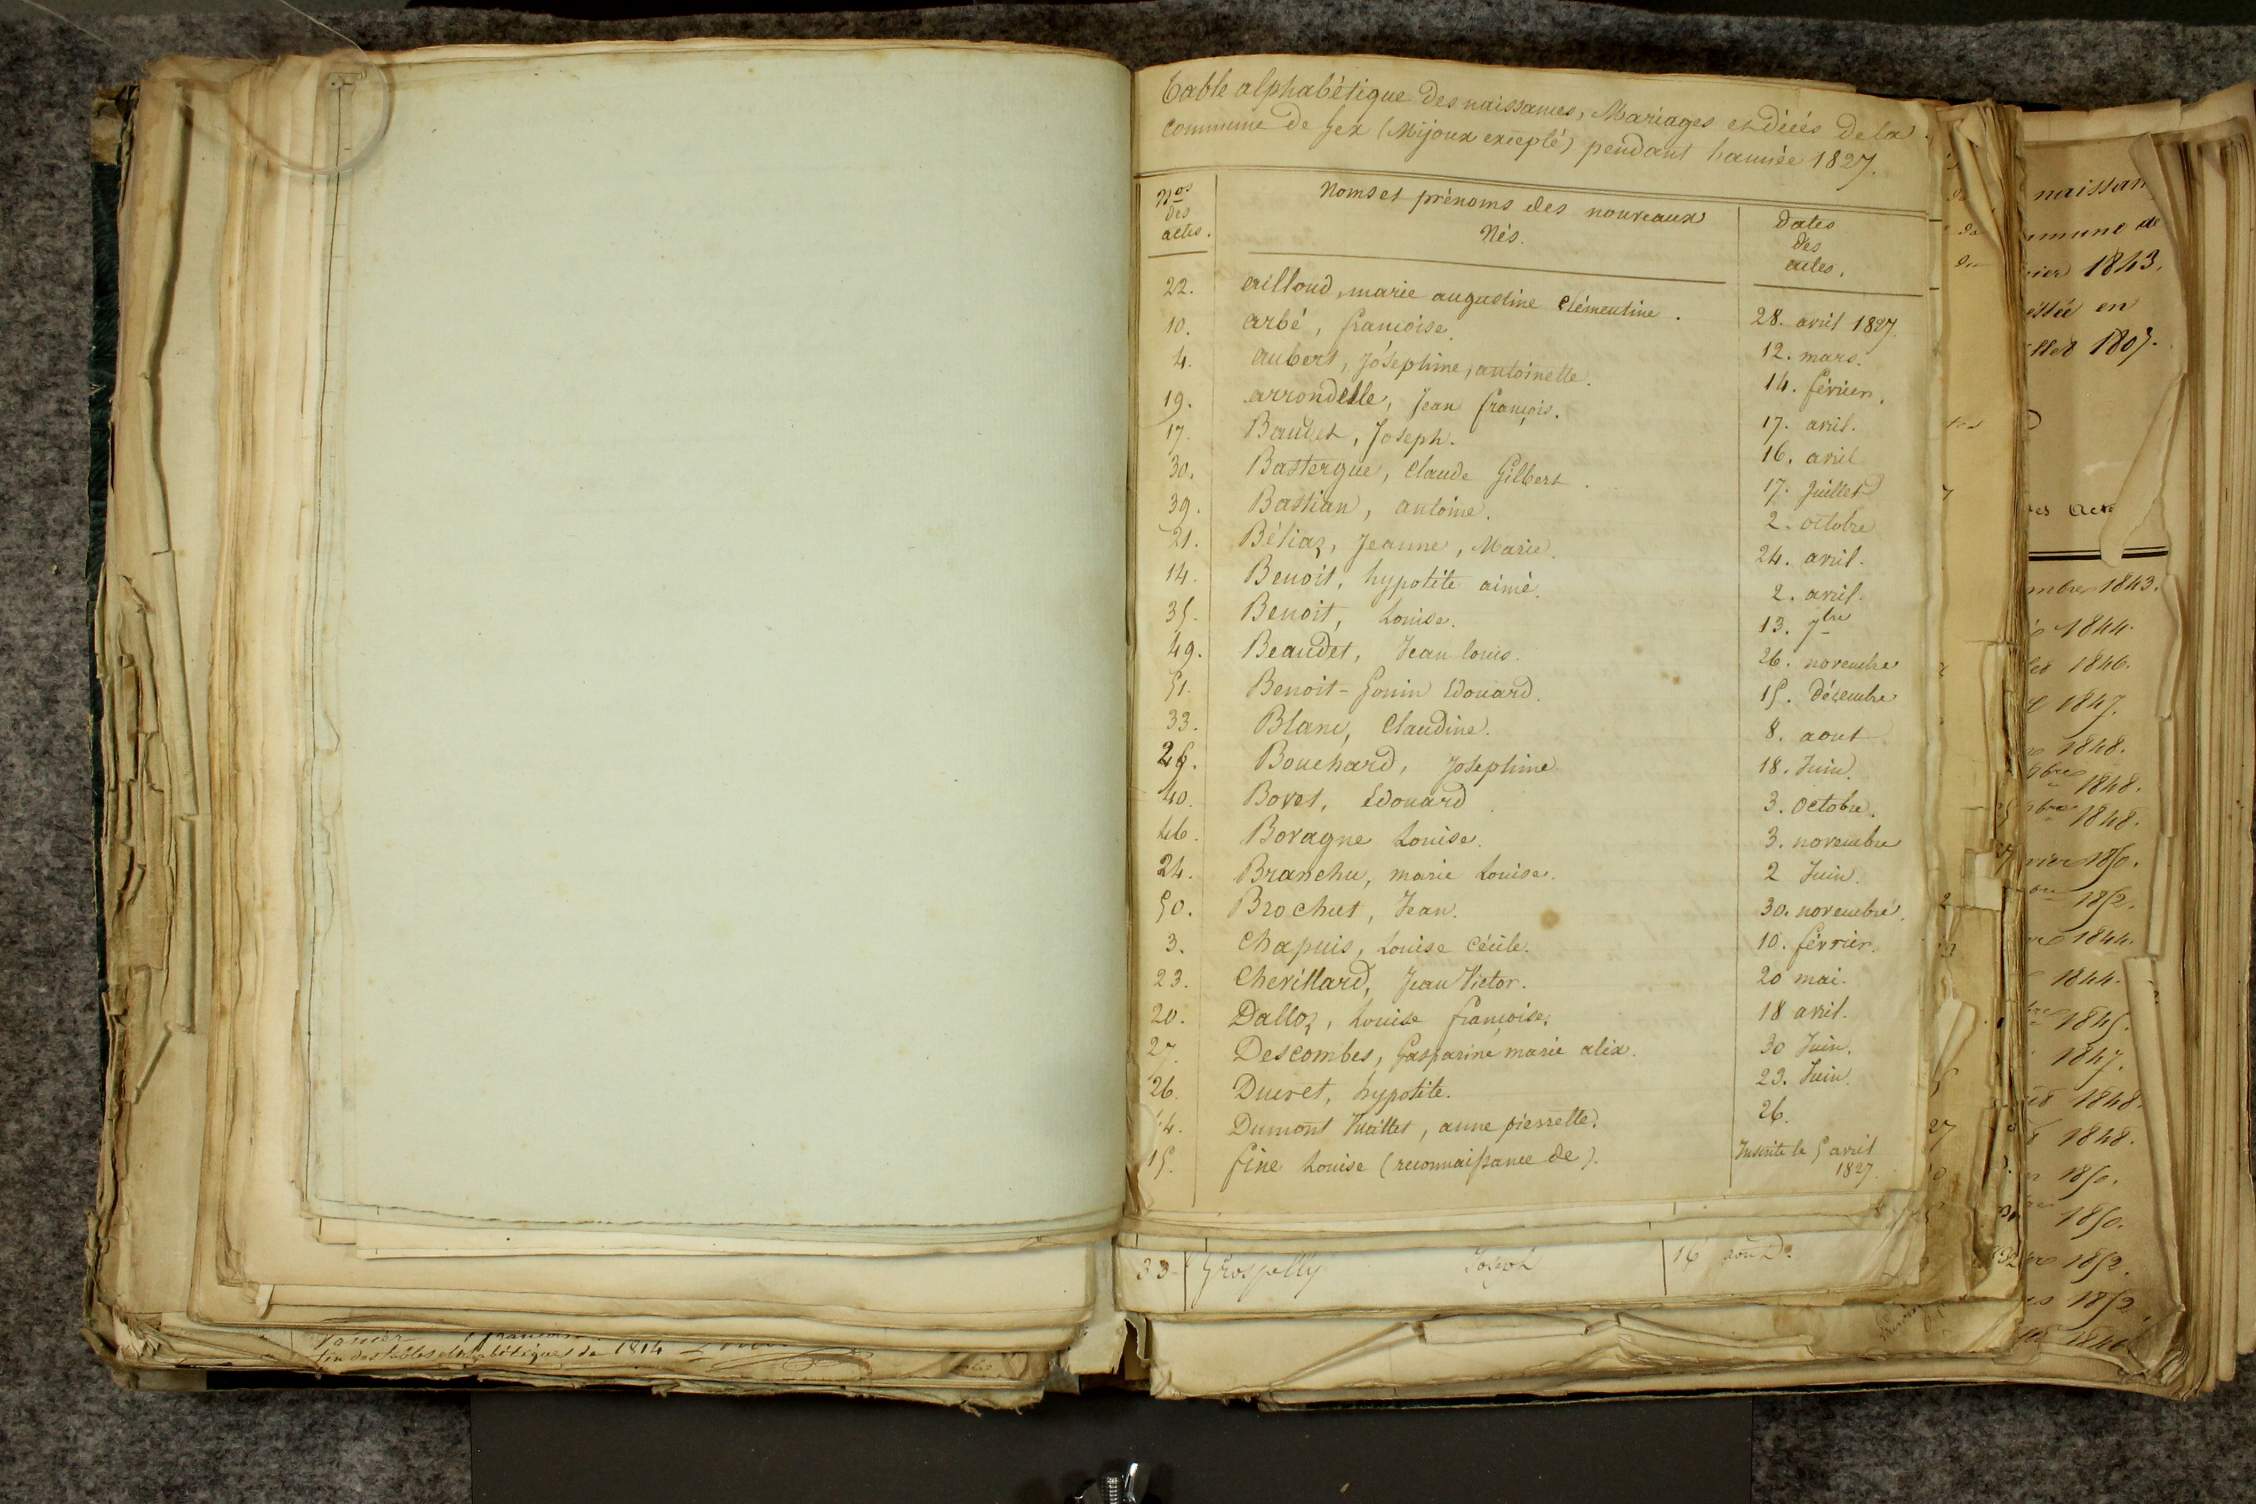 Table alphabétique des naissances, Mariages et décés de la
commune de Gex (Mijoux excepté) pendant l'année 1827.
Nos des actes.
Noms et prénoms des nouveaux Nés.
Dates des actes.
22. Ailloud, marie augustine Clémentine. 28. avril 1827.
10. Arbé, francoise. 12. mars.
4. Aubert, Joséphine, antoinette. 14. février.
19. Arrondelle, Jean françois. 17. avril.
17. Baudet, Joseph. 16. avril
30. Bastergue, Claude Gilbert. 17. Juillet
39. Bastian, antoine. 2. octobre
21. Béliaz, Jeanne, Marie. 24. avril.
14. Benoit, hypolite aimé. 2. avril.
35. Benoit, Louise. 13. 7bre
49. Beaudet, Jean louis. 26. novembre
51. Benoit-Gonin Edouard. 15. décembre
33. Blanc, Claudine. 8. aout
Bouchard, Joséphine 18. Juin.
40. Bovet, Edouard. 3. octobre.
46. Bovagne Louise. 3. novembre
24. Branchu, marie Louise. 2 Juin.
50. Brochut, Jean. 30. novembre.
3. Chapuis, Louise Cécile. 10. février.
23. Chevillard, Jean Victor. 20 mai.
20. Dalloz, Louise françoise. 18 avril.
27. Descombes, Gasparine marie alix. 30 Juin.
26. Ducret, hypolite. 23. Juin.
Dumont Maillet, anne pierrette. 26.
15. fine Louise (reconnaissance de). Inscrite le 5 avril 1827.
33 Joseph 16
fin des tables alphabétiques de 1814
naissan
1843.
en
1807.
1843.
1844.
1846.
1847.
1848.
1848.
1848.
1850.
1852.
1844.
1844.
1845.
1847.
1848.
1848.
1850.
1850.
1852.
1852